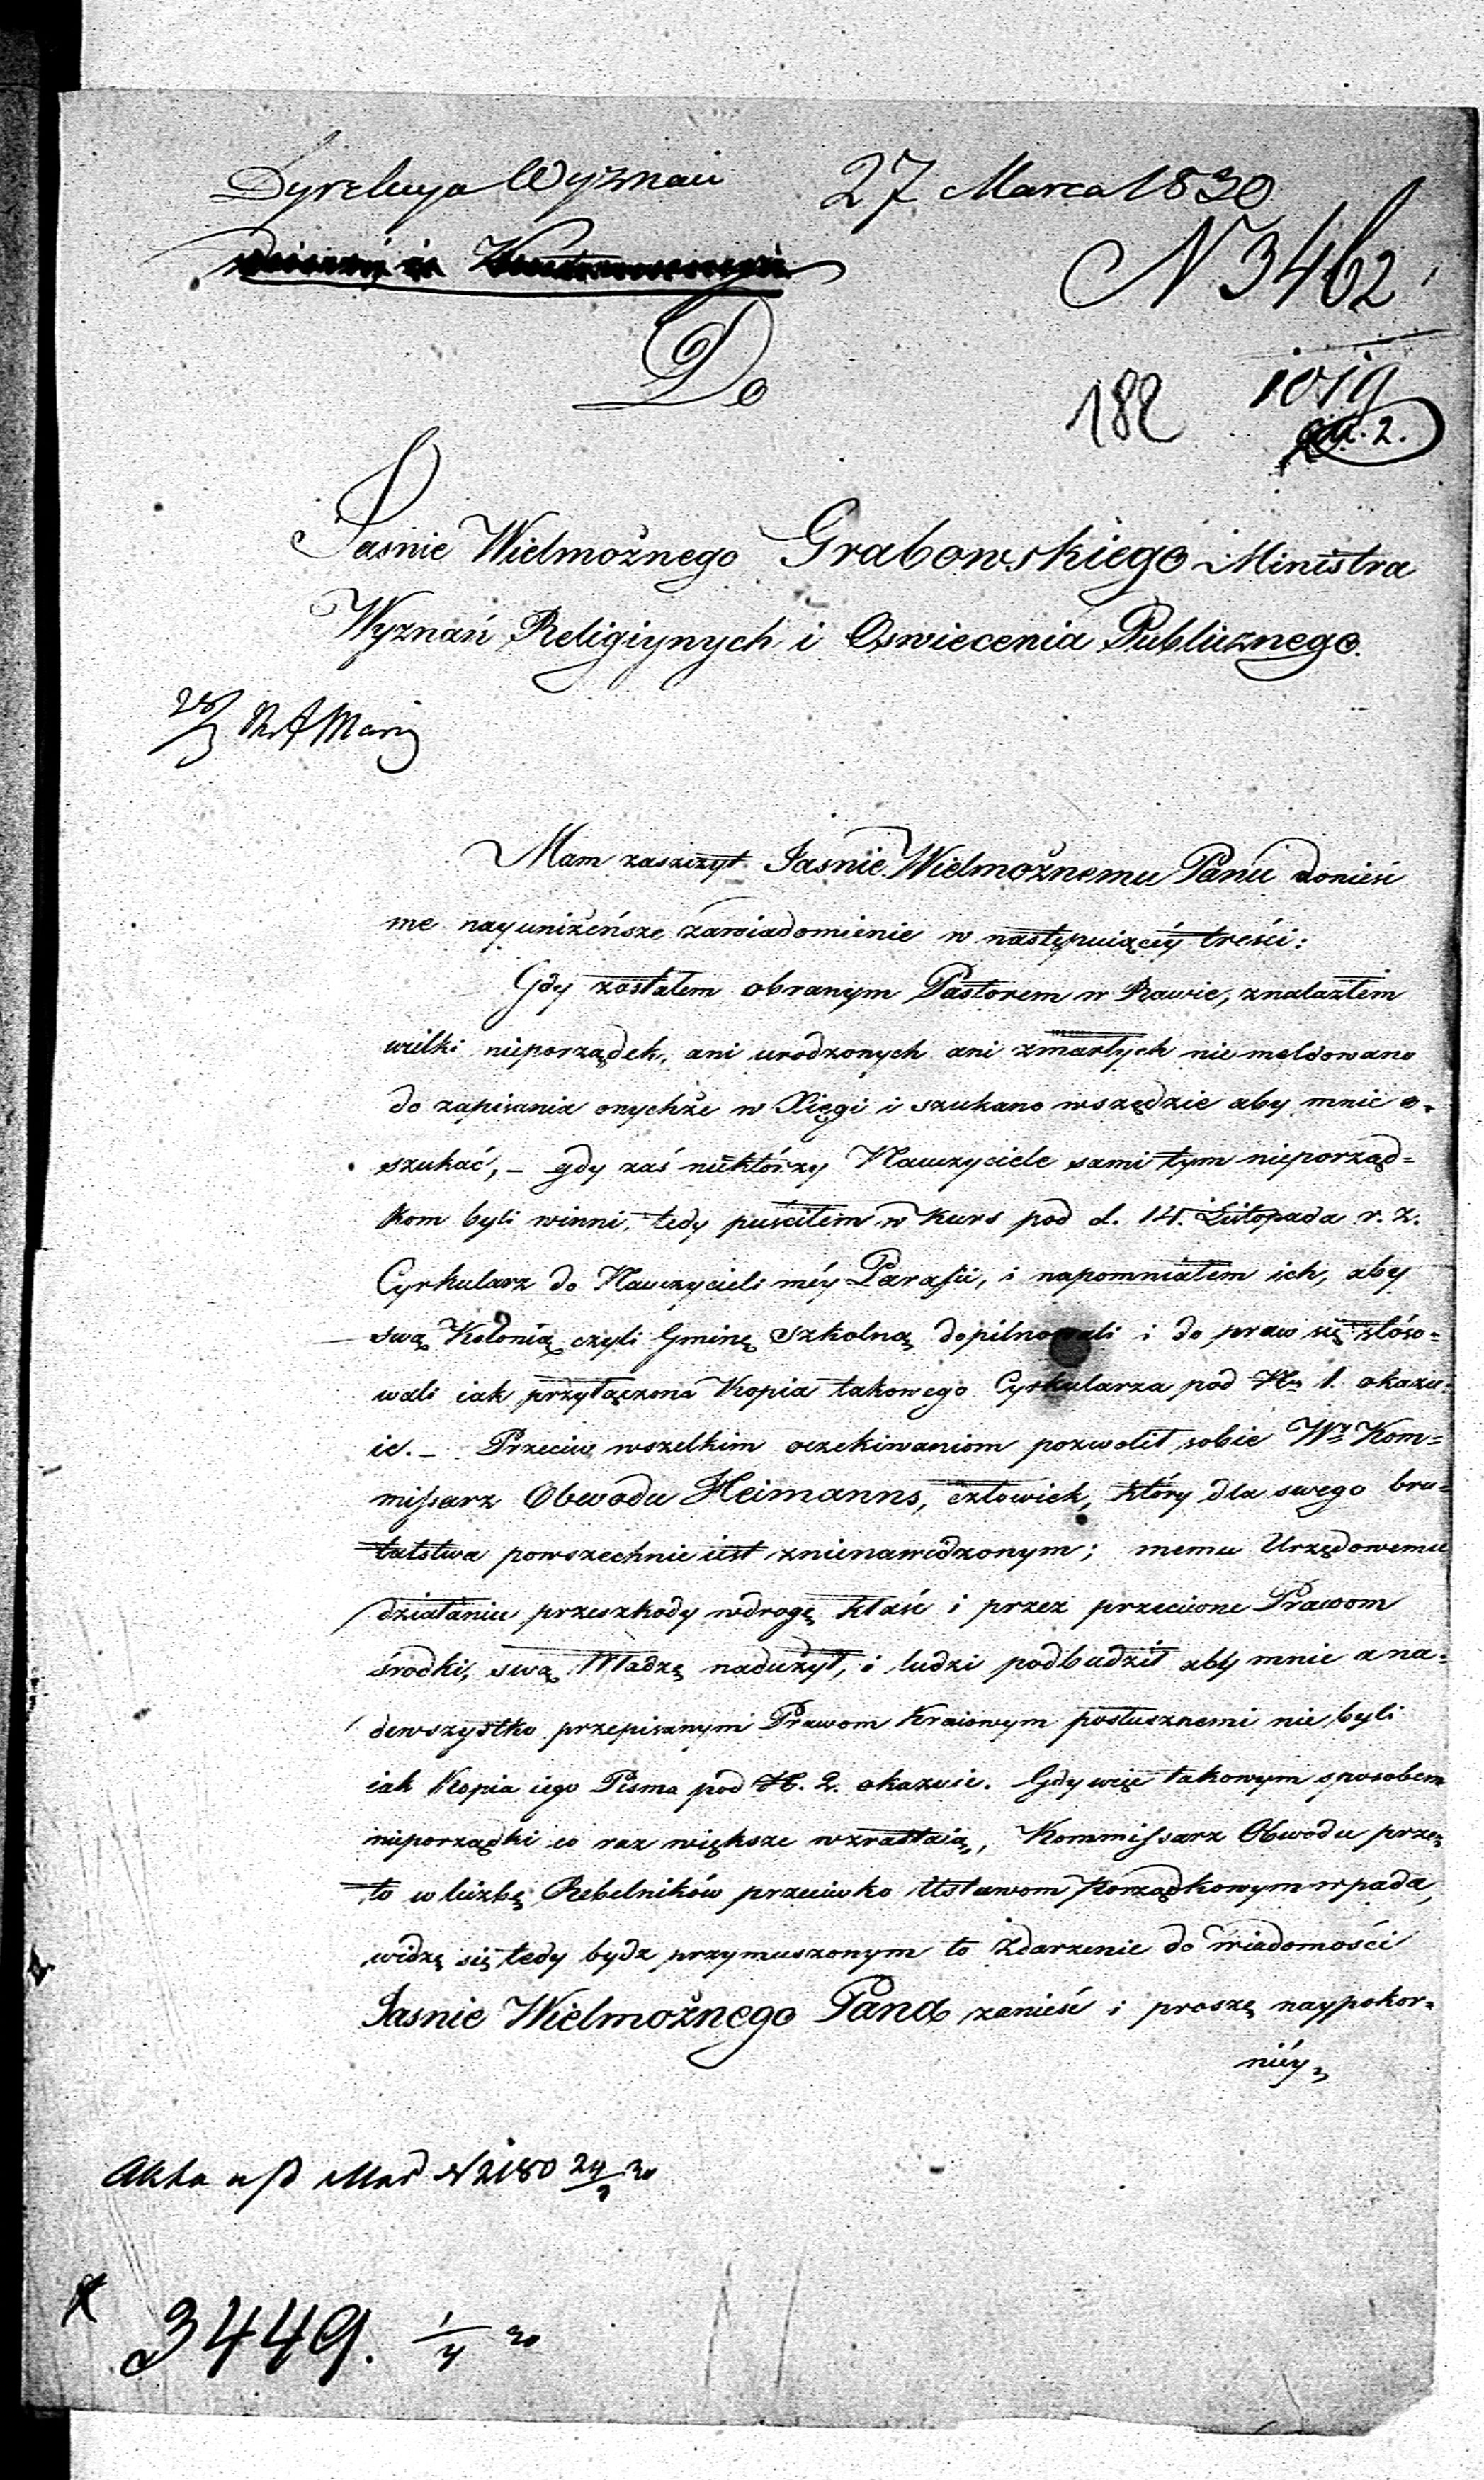 Dyrekcya Wyznań 27 Marca 1830
N 3462
Do
182
1019
2.
Jasnie Wielmożnego Grabowskiego Ministra
Wyznań Religiynych i Oswiecenia Publicznego.
28/3
Mam zaszczyt Jasnie Wielmożnemu Panu donieść
me nayuniżeńsze zawiadomienie w następuiącéy treści:
Gdy zostałem obranym Pastorem w Rawie, znalazłem
wielki nieporządek, ani urodzonych ani zmarłych nie meldowano
do zapisania onychże w Xięgi i szukano wszędzie aby mnie o-
szukać, – gdy zaś niektórzy Nauczyciele sami tym nieporząd=
kom byli winni, tedy puściłem w kurs pod d. 14. Listopada r. z.
Cyrkularz do Nauczycieli méy Parafii, i napomniałem ich, aby
swą Kolonią czyli Gminę szkolną dopilnowali i do praw się stóso=
wali iak przyłączona Kopia takowego Cyrkularza pod N 1. okazu=
ie. – Przeciw wszelkim oczekiwaniom pozwolił sobie Wy Kom=
missarz Obwodu Heimanns, człowiek, który dla swego bru=
talstwa powszechnie iest znienawidzonym; memu Urzędowemu
działaniu przeszkody w drogę kłaść i przez przeciwne Prawom
środki, swą Władzę nadużył, i ludzi podbudził aby mnie a na=
dewszystko przepisanymi Prawom Kraiowym posłusznemi nie byli
iak Kopia iego Pisma pod N. 2. okazuie. Gdy więc takowym sposobem
nieporządki co raz większe wzrastaią, Kommissarz Obwodu przez
to w liczbę Rebelników przeciwko Ustawom Porządkowym wpada,
widzę się tedy bydz przymuszonym to Zdarzenie do wiadomości
Jasnie Wielmożnego Pana zanieść i proszę naypokor=
niéy
Akta N 2180 24/3 30
3449. 1/4 30